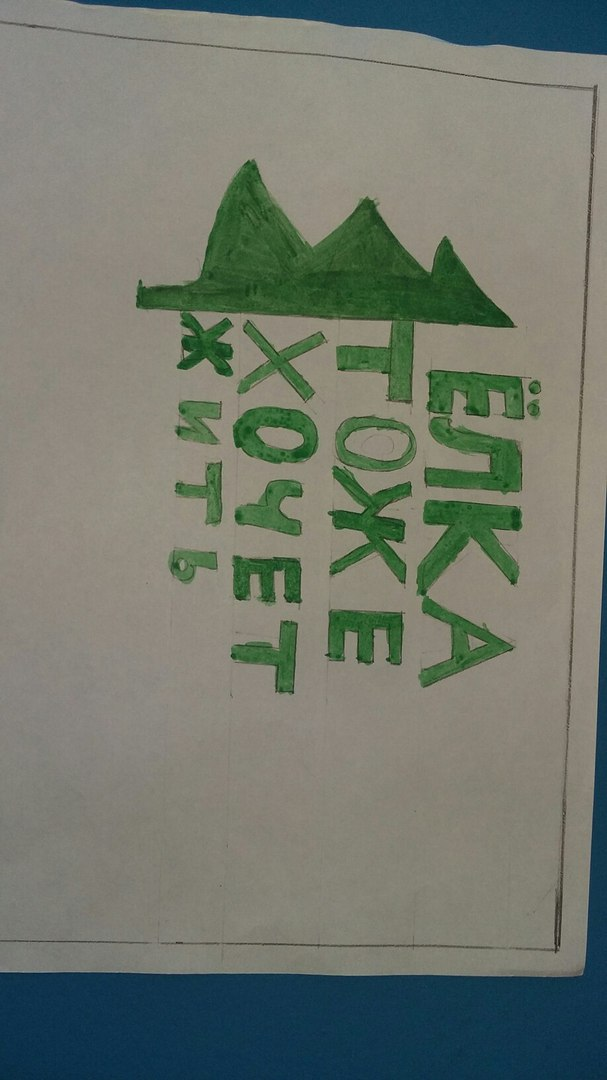 ЁЛКА
ТОЖЕ
ХОЧЕТ
ЖИТЬ